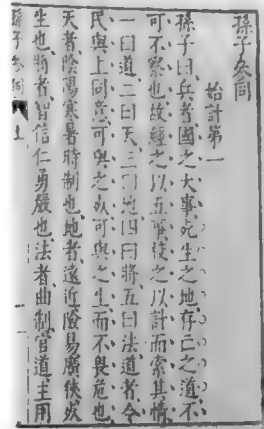 孫子叅同
始計第一
孫子曰兵者國之大事死生之地存亡之道不
可不察也故經之以五事校之以計而索其情
一曰道二曰天三曰地四曰將五曰法道者令
民與上同意可與之死可與之生而不畏危也
天者陰陽寒暑時制也地者遠近險易廣狹死
生也將者智信仁勇嚴也法者曲制官道主用
孫子叅同